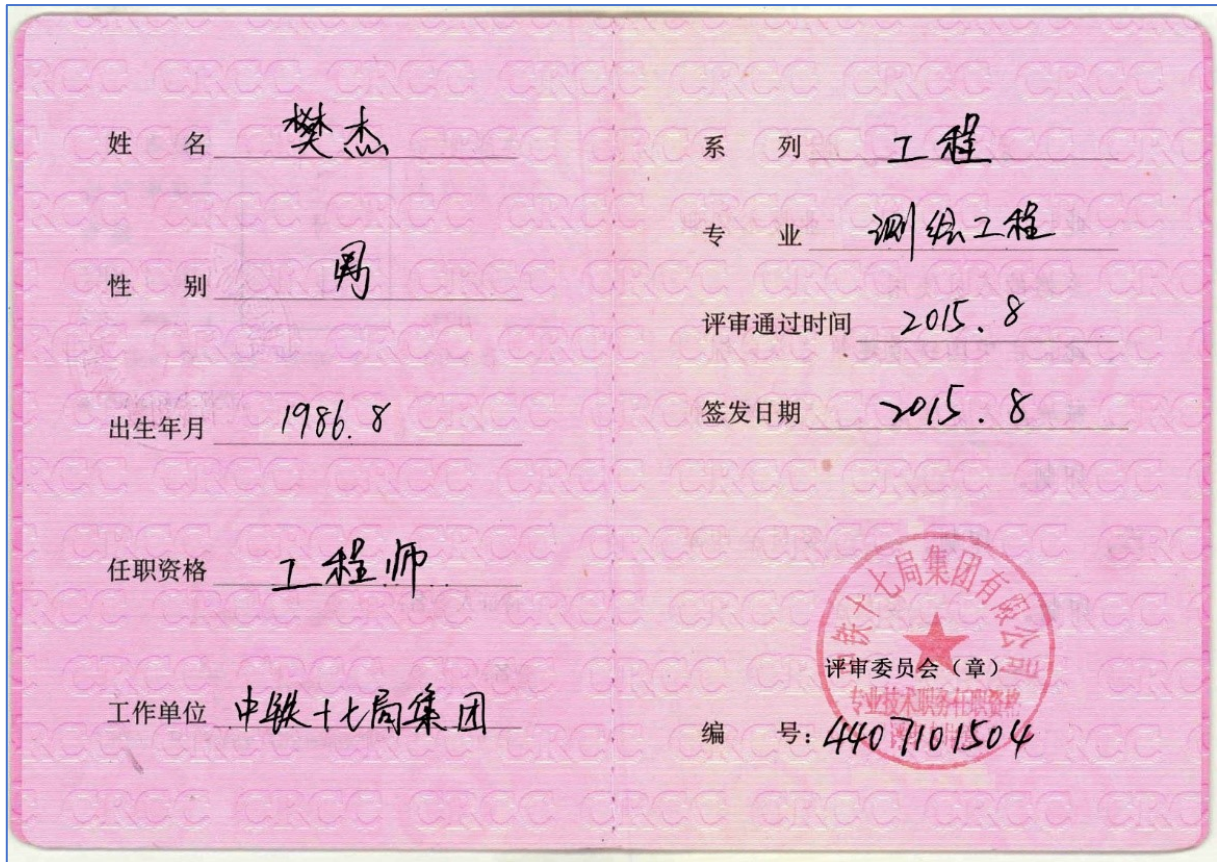 姓 名 樊杰
性 别 男
出生年月 1986.8
任职资格 工程师
工作单位 中铁十七局集团
系 列 工程
专 业 测绘工程
评审通过时间 2015.8
签发日期 2015.8
中铁十七局集团有限公司
评审委员会（章）
专业技术职务任职资格
编 号：4407101504
CRCC